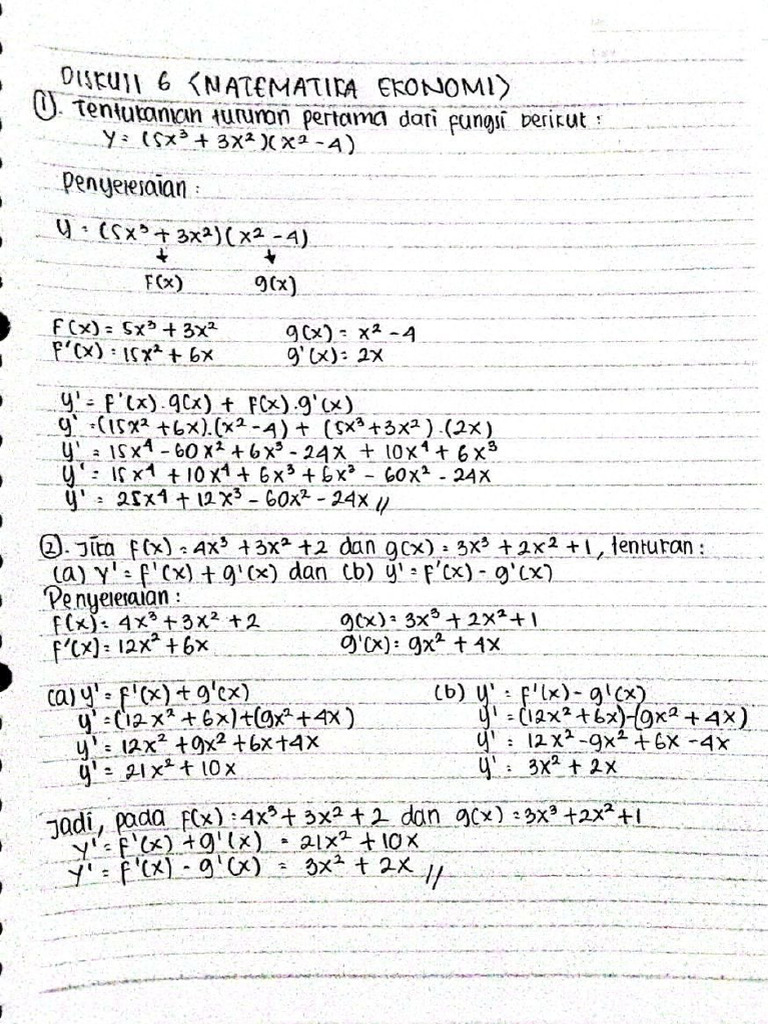 DISKUSI 6 <MATEMATIKA EKONOMI>
①. Tentukanlah turunan pertama dari fungsi berikut :
y = (5x³ + 3x²)(x² - 4)
Penyelesaian :
y = (5x³ + 3x²)(x² - 4)
↓ ↓
f(x) g(x)
f(x) = 5x³ + 3x² g(x) = x² - 4
f'(x) = 15x² + 6x g'(x) = 2x
y' = f'(x) . g(x) + f(x) . g'(x)
y' = (15x² + 6x) . (x² - 4) + (5x³ + 3x²) . (2x)
y' = 15x⁴ - 60x² + 6x³ - 24x + 10x⁴ + 6x³
y' = 15x⁴ + 10x⁴ + 6x³ + 6x³ - 60x² - 24x
y' = 25x⁴ + 12x³ - 60x² - 24x //
②. Jika f(x) = 4x³ + 3x² + 2 dan g(x) = 3x³ + 2x² + 1, tentukan :
(a) y' = f'(x) + g'(x) dan (b) y' = f'(x) - g'(x)
Penyelesaian :
f(x) = 4x³ + 3x² + 2 g(x) = 3x³ + 2x² + 1
f'(x) = 12x² + 6x g'(x) = 9x² + 4x
(a) y' = f'(x) + g'(x) (b) y' = f'(x) - g'(x)
y' = (12x² + 6x) + (9x² + 4x) y' = (12x² + 6x) - (9x² + 4x)
y' = 12x² + 9x² + 6x + 4x y' = 12x² - 9x² + 6x - 4x
y' = 21x² + 10x y' = 3x² + 2x
Jadi, pada f(x) = 4x³ + 3x² + 2 dan g(x) = 3x³ + 2x² + 1
y' = f'(x) + g'(x) = 21x² + 10x
y' = f'(x) - g'(x) = 3x² + 2x //